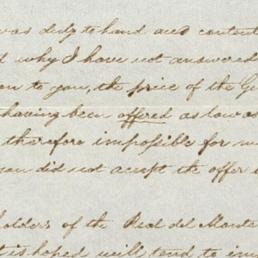 was duly to hand and content
why I have not answered
to you, the price of the
having been offered as low as
therefore impossible for
did not accept the offer
holders of the Real del Monte
is hoped will tend to